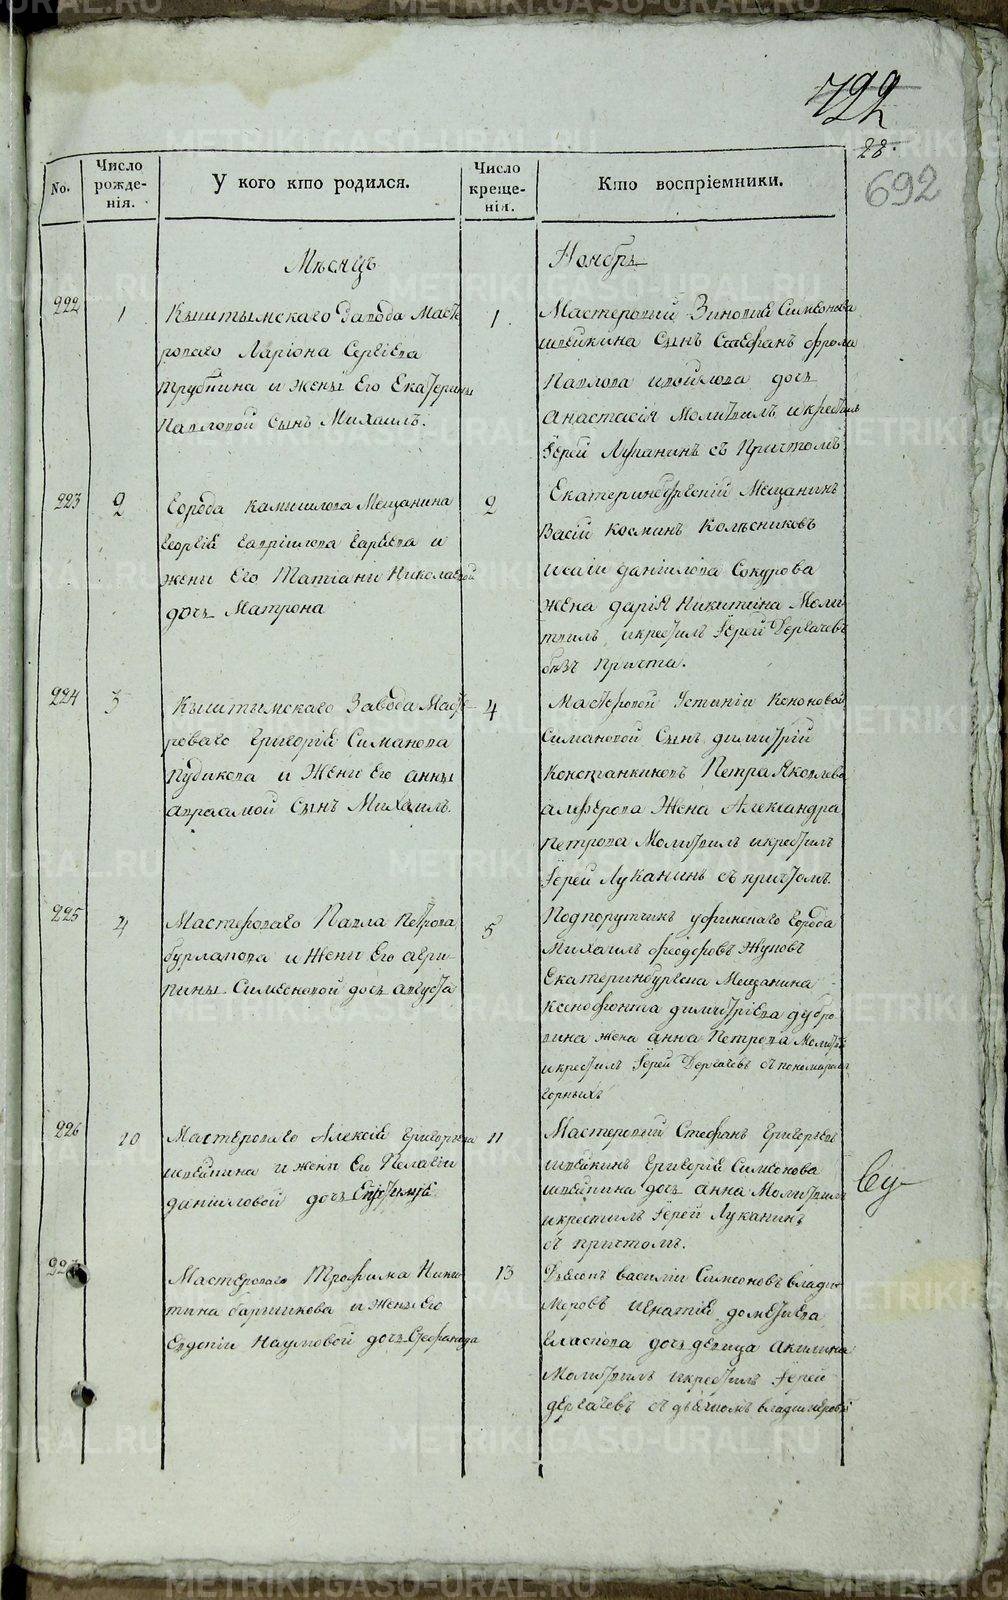 722
28.
692
No.
Число рожде-нія.
У кого кто родился.
Число креще-нія.
Кто воспріемники.
Мѣсяцъ
Ноябрь
222
1
Кыштымскаго Завода Масте
роваго Ларіона Сергѣева
Трубина и жены Его Екатерины
Павловой сынъ Михаилъ.
1.
Мастеровой Зиновіе Симеонова
швейкина сынъ Стефанъ фрола
Павлова дочь
анастасія Молитвилъ и крестилъ
Іерей Луканинъ съ Причтомъ
223
2
Города Камышлова Мещанина
Георгіе Гавріилова и
жени Его Татіани Николаевой
дочь Матрона
2
Екатеринбургскій Мещанинъ
Васій Козминъ Колѣсниковъ
Исаіи даніилова Сокурова
жена дарія Никитина Моли
твилъ и крестилъ Іерей Дергачевъ
безъ причта.
224
3
Кыштымскаго Завода Масте
роваго Григорій Симанова
Пудикова и Жени Его анны
сынъ Михаилъ.
4
Мастеровой Устиніи Кононовой
Симановой Сынъ димитрій
Петра Яковлева
алферова Жена Александра
Петрова Молитвилъ и крестилъ
Іерей Луканинъ съ причтомъ.
225
4
Мастероваго Павла Петрова
бурлакова и Жени Его агри-
пины Симеоновой дочь августа
5
Подпорутчикъ уфимскаго города
Михаилъ феодоровъ Жуковъ
Екатеринбургска Мещанина
Ксенофонта димитріева дубро
вина жена анна Петрова Молитвилъ
и крестилъ Іерей Дергачевъ съ пономаремъ
горныхъ
226
10
Мастероваго Алексіе Григорьева
швейкина и жени Ег Пелагіи
даніиловой дочь
11
Мастеровый Стефанъ Григорьевъ
швейкинъ Григоріе Симеонова
швейкина дочь анна Молитвилъ
и крестилъ Іерей Луканинъ
съ причтомъ.
227
Мастероваго Трофима Ники-
тина баришкова и жены Его
Евдокіи Наумовой дочь
13
Дьяконъ василіи Симеоновъ влади-
меровъ игнатіе дометіева
власова дочь девица акилина
Молитвилъ и крестилъ Іерей
дергачевъ съ дьякономъ владимеровы
METRIKI.GASO-URAL.RU